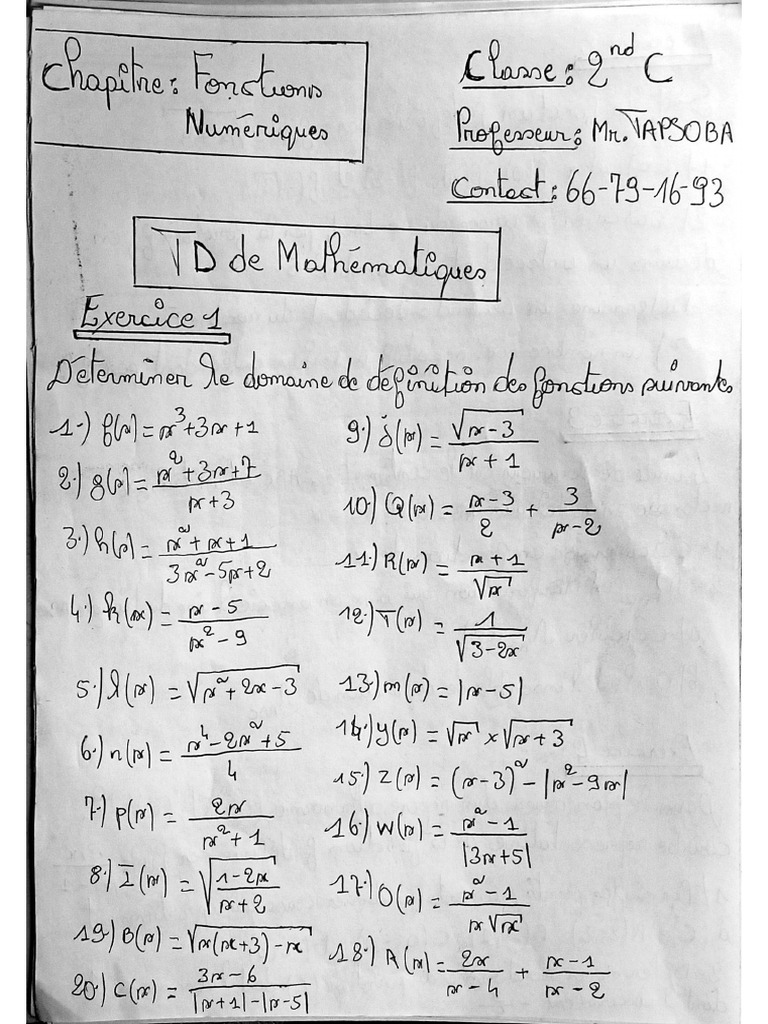 Chapitre: Fonctions
Numériques
Classe: 2nd C
Professeur: Mr. TAPSOBA
Contact: 66-79-16-93
TD de Mathématiques
Exercice 1
Déterminer le domaine de définition des fonctions suivantes
1-) f(x) = x³+3x+1
2-) g(x) = (x²+3x+7)/(x+3)
3-) h(x) = (x²+x+1)/(3x²-5x+2)
4-) k(x) = (x-5)/(x²-9)
5-) l(x) = √(x²+2x-3)
6-) n(x) = (x⁴-2x²+5)/4
7-) p(x) = 2x/(x²+1)
8-) I(x) = √((1-2x)/(x+2))
19-) B(x) = √(x(x+3)-x)
20-) C(x) = (3x-6)/(|x+1|-|x-5|)
9-) j(x) = √(x-3)/(x+1)
10-) Q(x) = (x-3)/2 + 3/(x-2)
11-) R(x) = (x+1)/√x
12-) T(x) = 1/√(3-2x)
13-) m(x) = |x-5|
14-) y(x) = √x × √(x+3)
15-) Z(x) = (x-3)² - |x²-9x|
16-) W(x) = (x²-1)/|3x+5|
17-) O(x) = (x²-1)/(x√x)
18-) A(x) = 2x/(x-4) + (x-1)/(x-2)